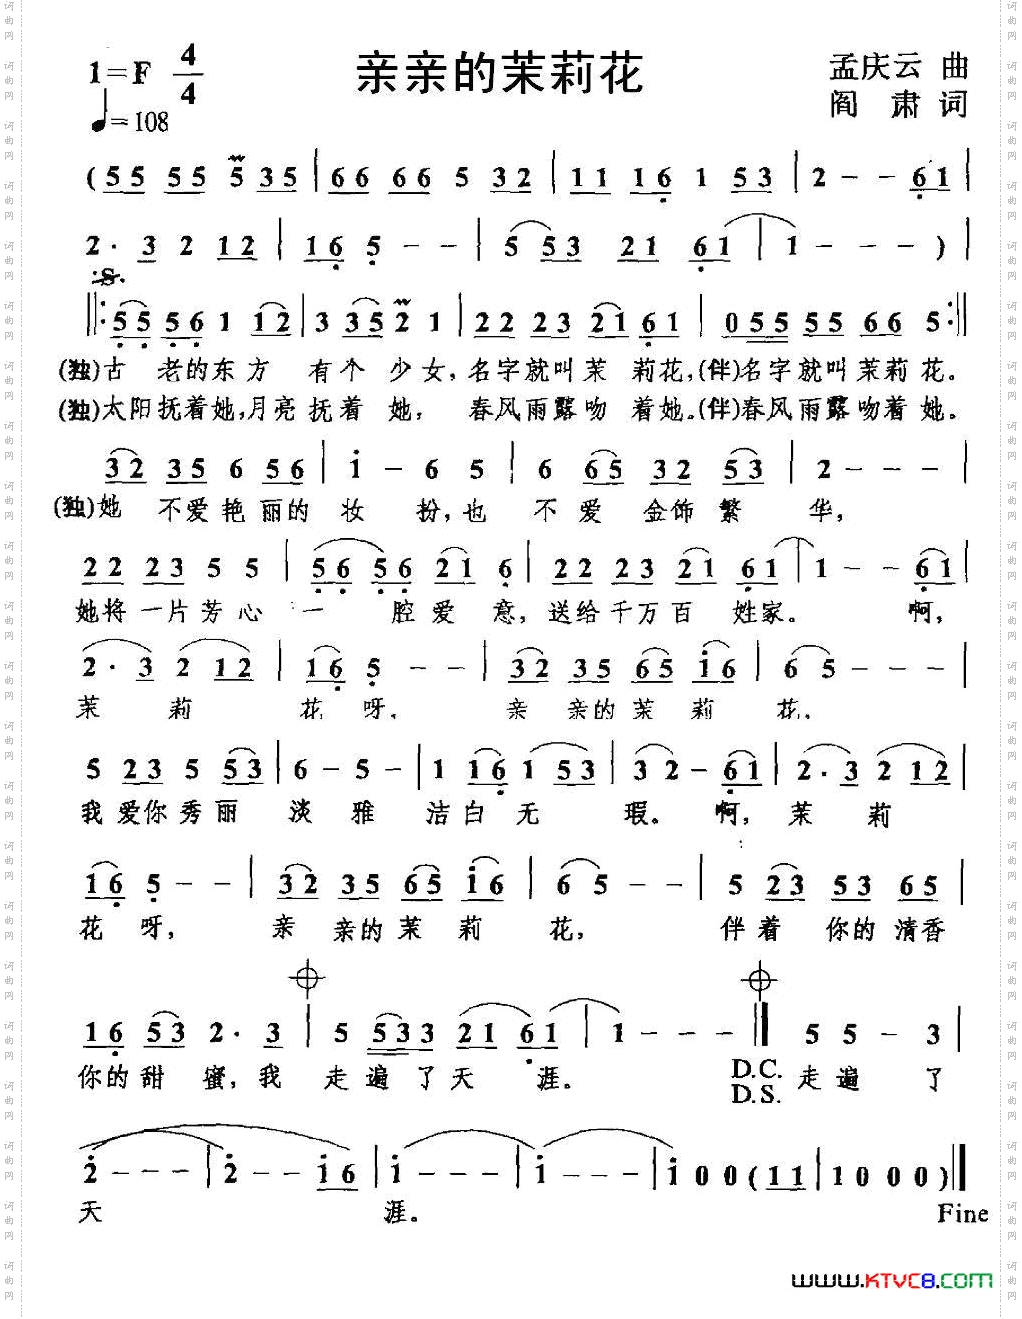 亲亲的茉莉花
1=F 4/4
♩=108
孟庆云 曲
阎 肃 词
(55 55 5 35 | 66 66 5 32 | 11 16 1 53 | 2 - - 61 |
2· 3 2 12 | 16 5 - - | 5 53 21 61 | 1 - - - )|
‖: 55 56 1 12 | 3 35 2 1 | 22 23 21 61 | 055 55 66 5 :‖
(独)古 老的东方 有个 少女,名字就叫茉 莉花,(伴)名字就叫茉莉花。
(独)太阳抚着她,月亮抚着 她, 春风雨露吻 着她。(伴)春风雨露吻着她。
32 35 6 56 | i - 6 5 | 6 65 32 53 | 2 - - |
(独)她 不爱艳丽的妆 扮,也 不爱 金饰繁 华,
22 23 5 5 | 56 56 21 6 | 22 23 21 61 | 1 - - 61 |
她将一片芳心 一 腔爱 意,送给千万百 姓家。 啊,
2· 3 2 12 | 16 5 - - | 32 35 65 i6 | 6 5 - - |
茉 莉 花呀, 亲 亲的茉 莉 花,
5 23 5 53 | 6 - 5 - | 1 16 1 53 | 3 2 - 61 | 2· 3 2 12 |
我爱你秀丽 淡雅 洁白无 瑕。 啊,茉 莉
16 5 - - | 32 35 65 i6 | 6 5 - - | 5 23 53 65 |
花 呀, 亲 亲的茉 莉 花, 伴着 你的清香
16 53 2· 3 | 5 533 21 61 | 1 - - - ‖ 5 5 - 3 |
你的甜 蜜,我 走遍了天 涯。 D.C. 走遍 了
D.S.
2 - - - | 2 - - i6 | i - - - | i - - - | i 0 0 (11 | 1 0 0 0)‖
天 涯。 Fine
www.KTVC8.com